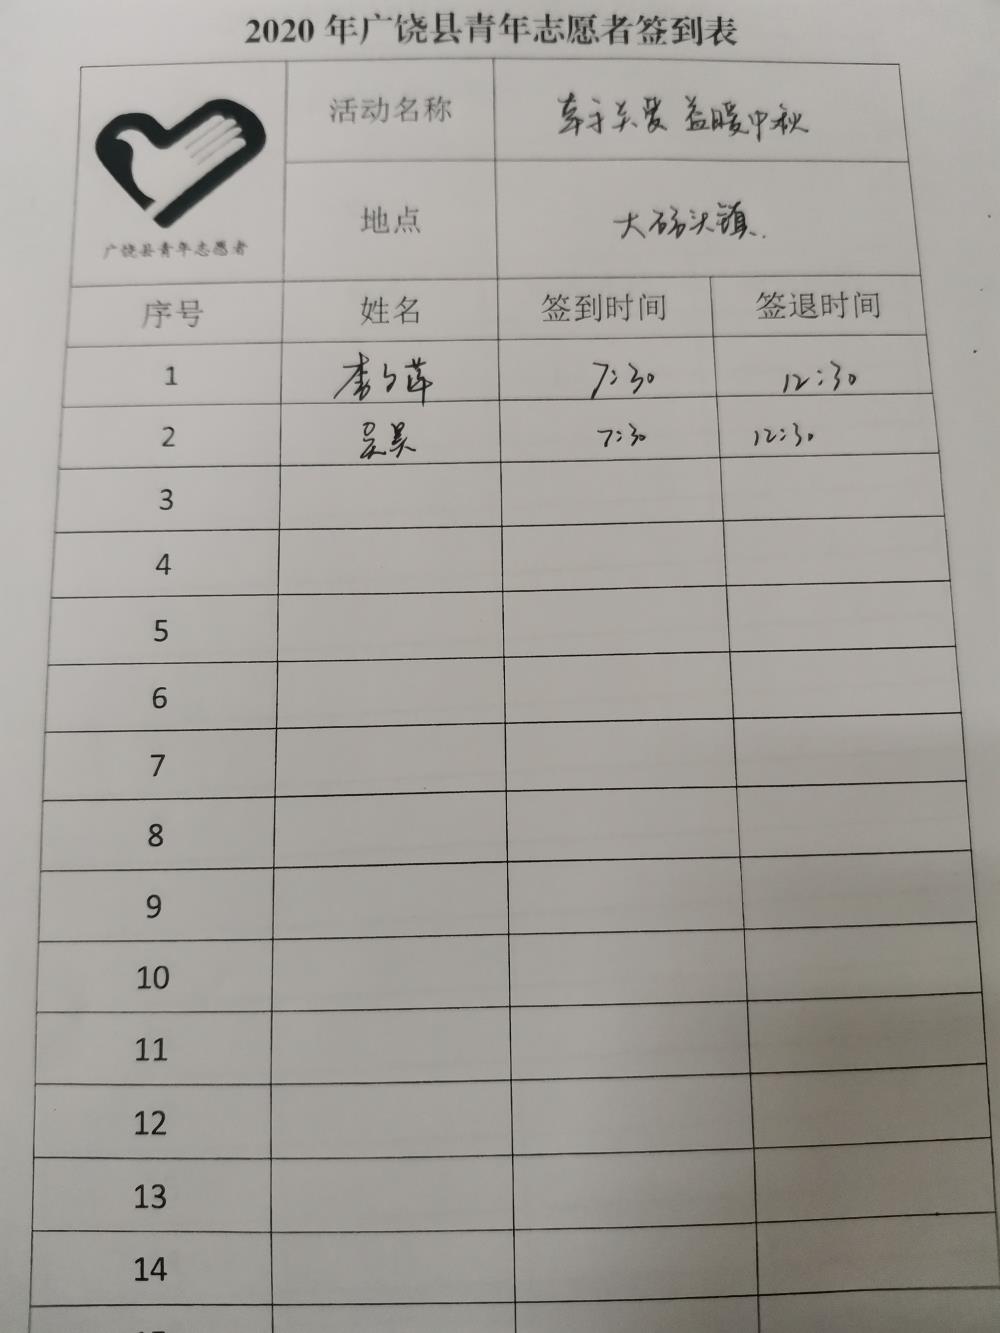 2020年广饶县青年志愿者签到表
活动名称 牵手关爱 益暖中秋
广饶县青年志愿者
地点 大码头镇.
序号 姓名 签到时间 签退时间
1 李 莲 7:30 12:30
2 吴昊 7:30 12:30
3
4
5
6
7
8
9
10
11
12
13
14